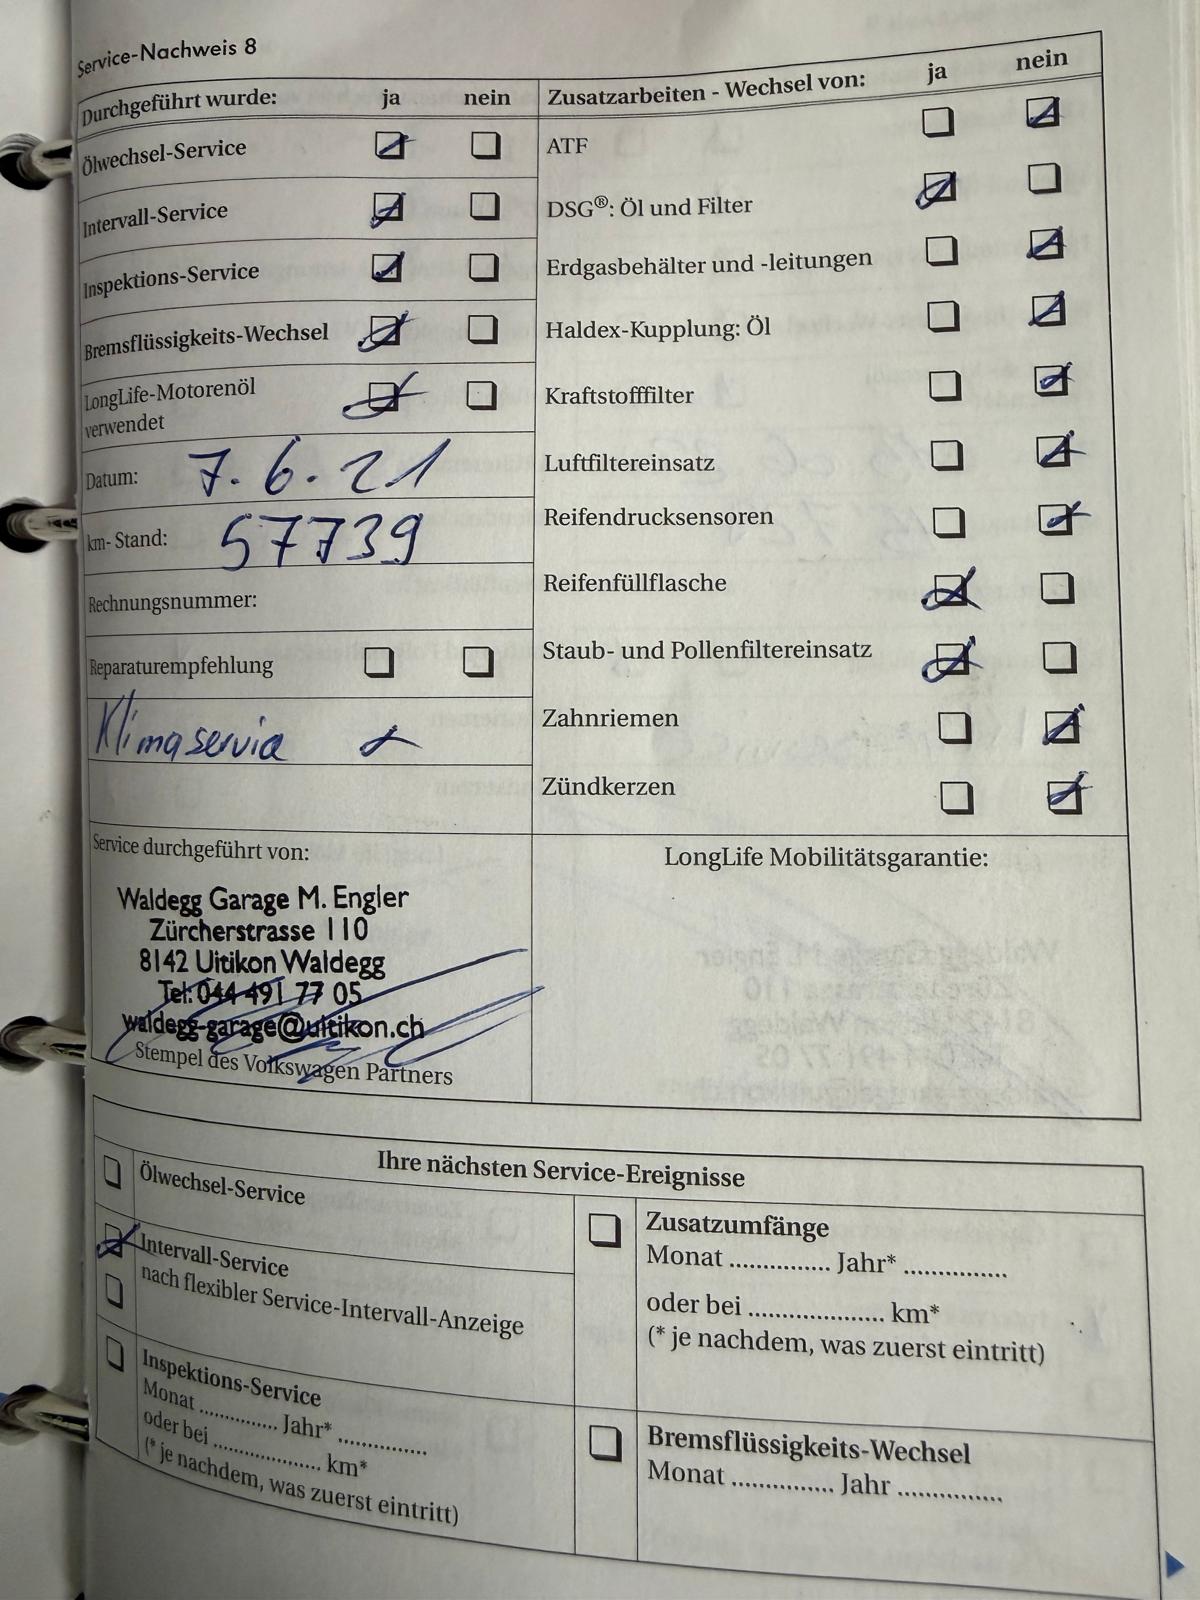 Service-Nachweis 8
Durchgeführt wurde: ja nein
Ölwechsel-Service
Intervall-Service
Inspektions-Service
Bremsflüssigkeits-Wechsel
LongLife-Motorenöl
verwendet
Datum: 7.6.21
km-Stand: 57739
Rechnungsnummer:
Reparaturempfehlung
Klimaservice
Service durchgeführt von:
Waldegg Garage M. Engler
Zürcherstrasse 110
8142 Uitikon Waldegg
Tel: 044 491 77 05
waldegg-garage@uitikon.ch
Stempel des Volkswagen Partners
Zusatzarbeiten - Wechsel von: ja nein
ATF
DSG®: Öl und Filter
Erdgasbehälter und -leitungen
Haldex-Kupplung: Öl
Kraftstofffilter
Luftfiltereinsatz
Reifendrucksensoren
Reifenfüllflasche
Staub- und Pollenfiltereinsatz
Zahnriemen
Zündkerzen
LongLife Mobilitätsgarantie:
Ihre nächsten Service-Ereignisse
Ölwechsel-Service
Intervall-Service
nach flexibler Service-Intervall-Anzeige
Inspektions-Service
Monat .............. Jahr* ................
oder bei ................... km*
(* je nachdem, was zuerst eintritt)
Zusatzumfänge
Monat ................ Jahr* ................
oder bei ..................... km*
(* je nachdem, was zuerst eintritt)
Bremsflüssigkeits-Wechsel
Monat ................ Jahr ................